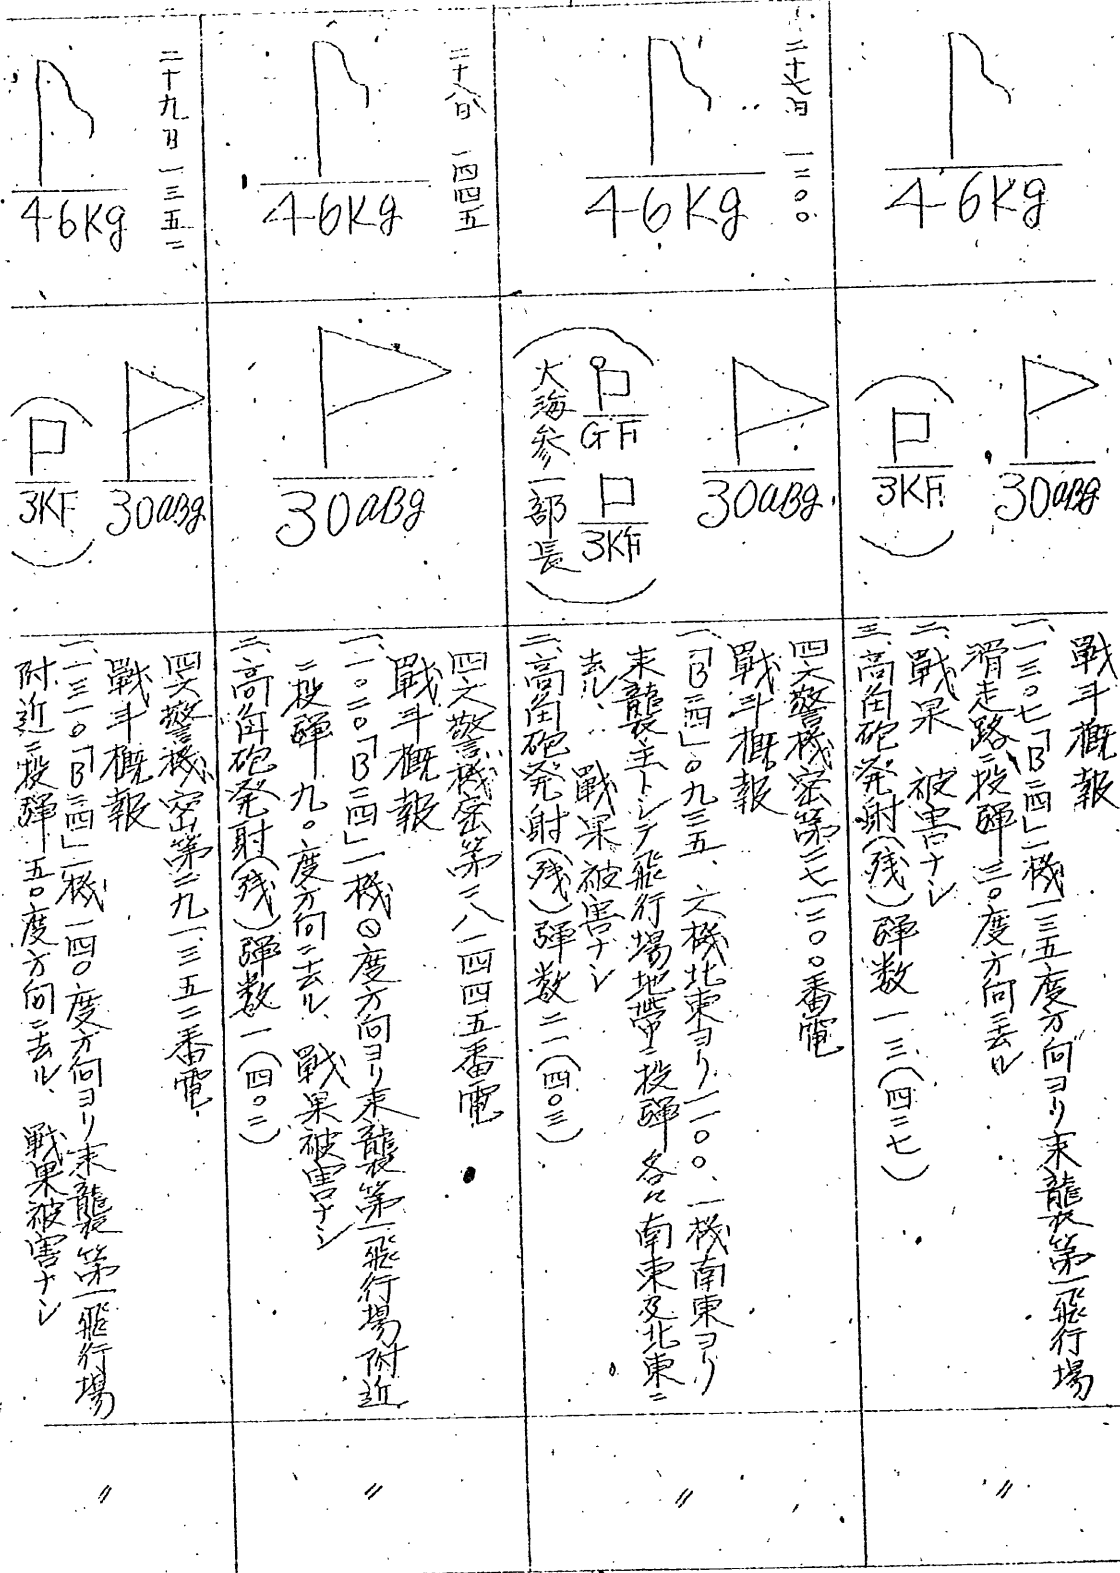 4-6Kg
30aBg
3KF
戦斗概報
一、一三〇七「B二四」一機一三五度方向ヨリ来襲第一飛行場
滑走路ニ投弾 三〇度方向ニ去ル
二、戦果 被害ナシ
三、高角砲発射(残)弾数 一三(四二七)
〃
二十七日 一二〇〇
4-6Kg
30aBg
GF
3KF
大海参一部長
四六警機密第二七一二〇〇番電
戦斗概報
一、「B二四」〇九三五、六機北東ヨリ一一〇〇、一機南東ヨリ
来襲主トシテ飛行場地帯ニ投弾 各々南東及北東ニ
去ル、戦果被害ナシ
二、高角砲発射(残)弾数 二一(四〇三)
〃
二十八日 一四四五
4-6Kg
30aBg
四六警機密第二八一四四五番電
戦斗概報
一、一〇二〇「B二四」一機〇度方向ヨリ来襲第一飛行場附近
ニ投弾 九〇度方向ニ去ル、戦果被害ナシ
二、高角砲発射(残)弾数 一(四〇二)
〃
二十九日 一三五二
4-6Kg
30aBg
3KF
四六警機密第二九一三五二番電
戦斗概報
一、一三一〇「B二四」一機一四〇度方向ヨリ来襲第一飛行場
附近ニ投弾 五〇度方向ニ去ル、戦果被害ナシ
〃